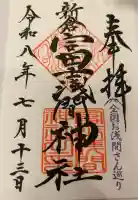 奉拝
全国お浅間さん巡り
新倉
富士浅間神社
令和八年七月十三日